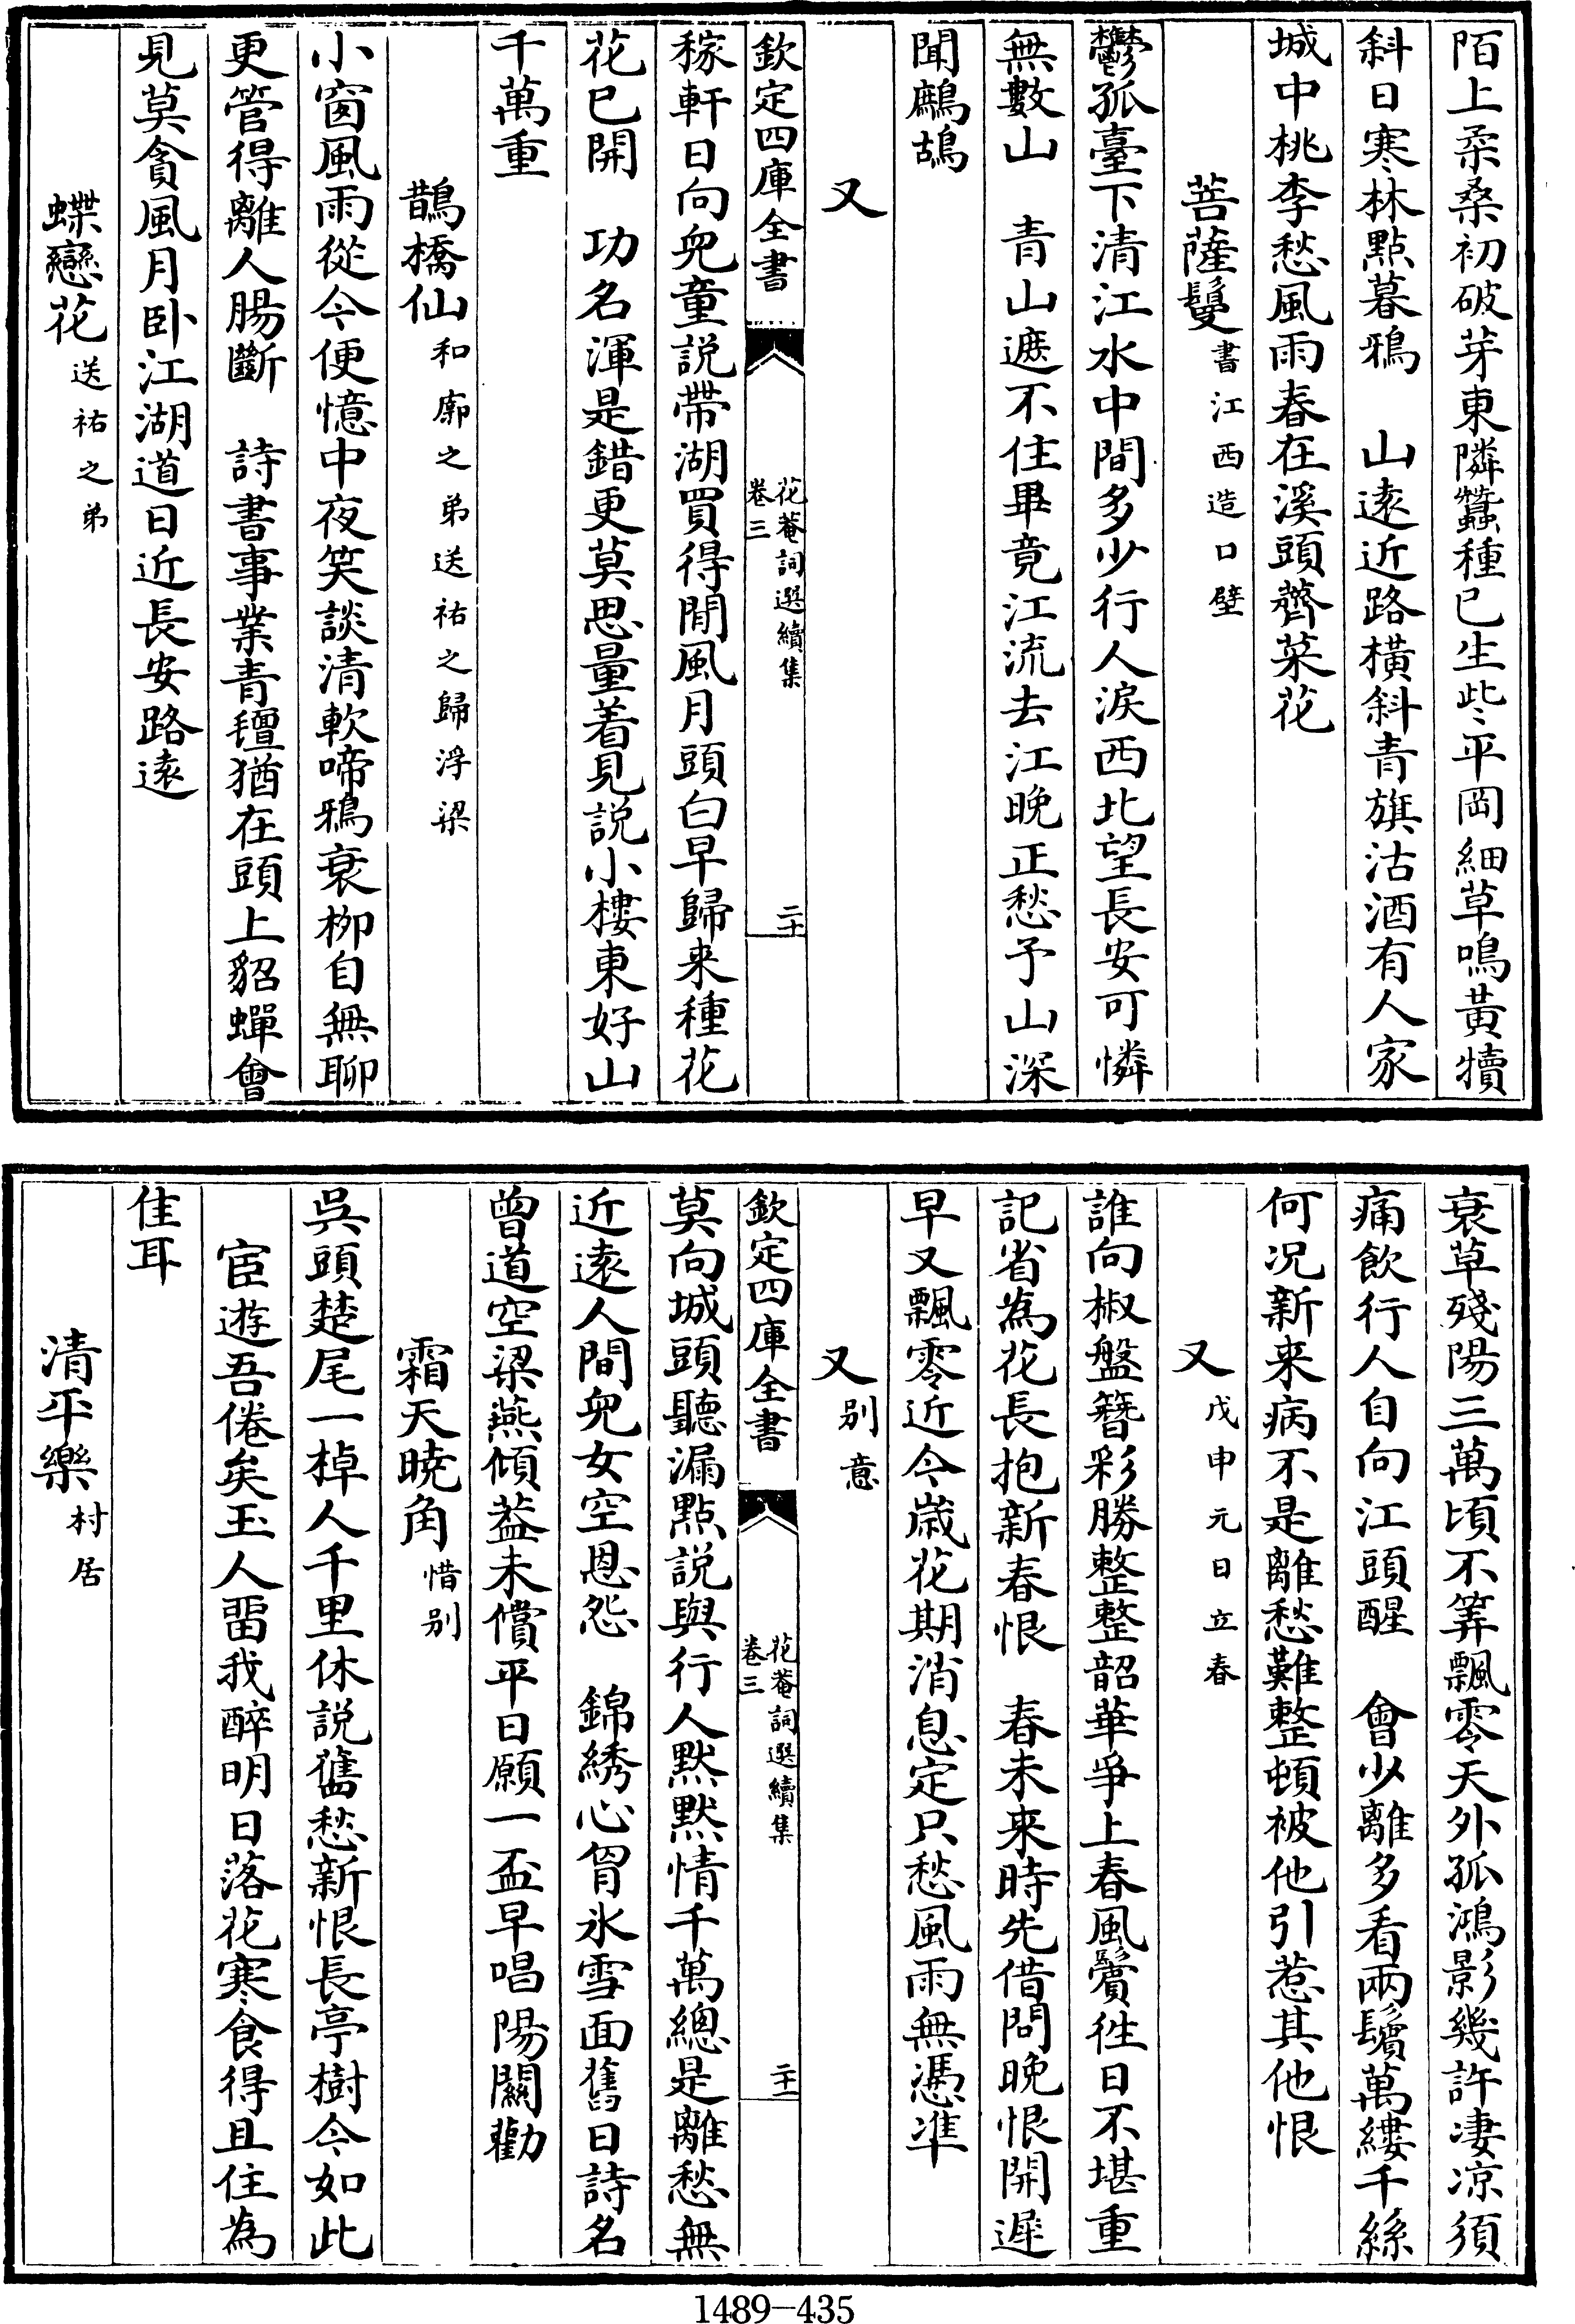 陌上柔桑初破芽東隣蠶種已生些平岡細草鳴黃犢
斜日寒林點暮鴉　山遠近路橫斜青旗沽酒有人家
城中桃李愁風雨春在溪頭薺菜花
菩薩鬘書江西造口壁
鬱孤臺下清江水中間多少行人淚西北望長安可憐
無數山　青山遮不住畢竟江流去江晚正愁予山深
聞鷓鴣
又
欽定四庫全書
花菴詞選續集
卷三
二十
稼軒日向兒童說帶湖買得閒風月頭白早歸来種花
花已開　功名渾是錯更莫思量着見說小樓東好山
千萬重
鵲橋仙和廓之弟送祐之歸浮梁
小窗風雨從今便憶中夜笑談清軟啼鴉衰柳自無聊
更管得離人腸斷　詩書事業青氊猶在頭上貂蟬會
見莫貪風月卧江湖道日近長安路遠
蝶戀花送祐之弟
衰草殘陽三萬頃不筭飄零天外孤鴻影幾許凄凉須
痛飲行人自向江頭醒　會少離多看兩鬢萬縷千絲
何况新来病不是離愁難整頓被他引惹其他恨
又戊申元日立春
誰向椒盤簪彩勝整整韶華爭上春風鬢徃日不堪重
記省為花長抱新春恨　春未来時先借問晚恨開遲
早又飄零近今歳花期消息定只愁風雨無憑準
又别意
欽定四庫全書
花菴詞選續集
卷三
二十一
莫向城頭聽漏點說與行人默默情千萬總是離愁無
近遠人間兒女空恩怨　錦綉心胷氷雪面舊日詩名
曾道空梁燕傾葢未償平日願一盃早唱陽關勸
霜天曉角惜别
吳頭楚尾一棹人千里休說舊愁新恨長亭樹今如此
　宦遊吾倦矣玉人畱我醉明日落花寒食得且住為
佳耳
清平樂村居
1489－435